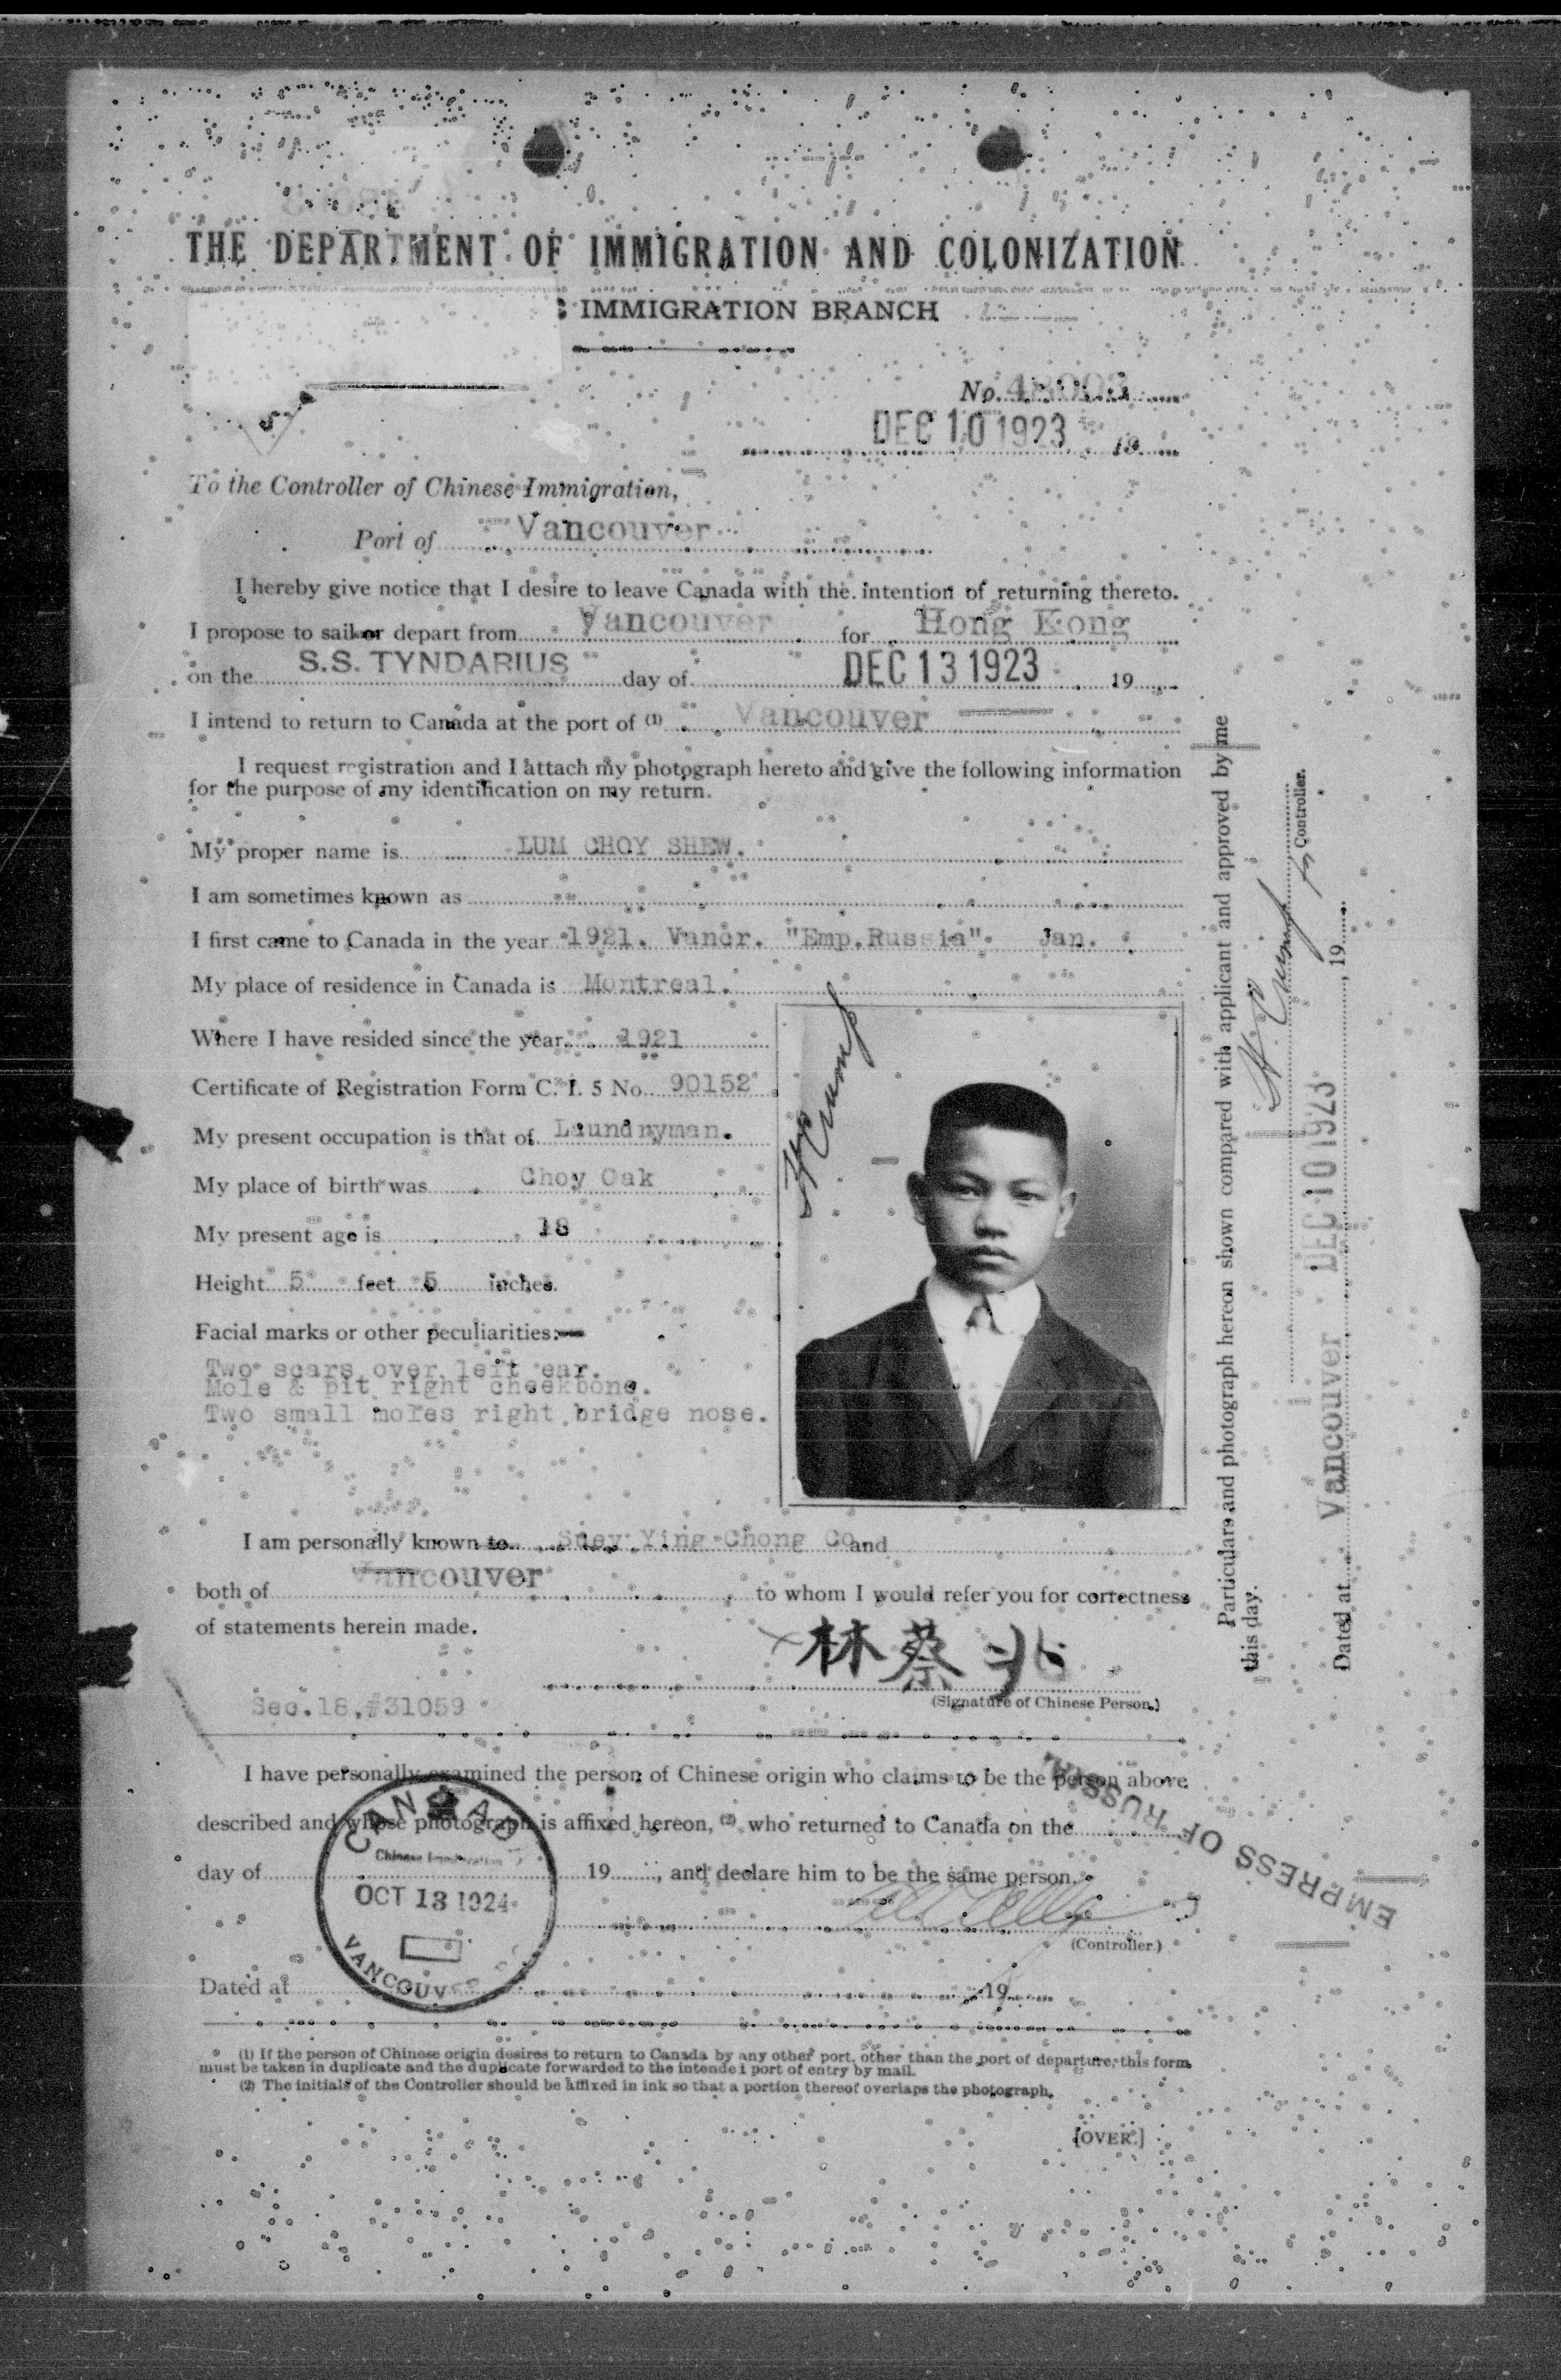 THE DEPARTMENT OF IMMIGRATION AND COLONIZATION
IMMIGRATION BRANCH
No.
DEC 10 1923 19
To the Controller of Chinese Immigration,
Port of Vancouver
I hereby give notice that I desire to leave Canada with the intention of returning thereto.
I propose to sail or depart from Vancouver for Hong Kong
on the S.S. TYNDARIUS day of DEC 13 1923 19
I intend to return to Canada at the port of (1) Vancouver
I request registration and I attach my photograph hereto and give the following information
for the purpose of my identification on my return.
My proper name is LUM CHOY SHEW.
I am sometimes known as
I first came to Canada in the year 1921. Vancr. "Emp.Russia" Jan.
My place of residence in Canada is Montreal.
Where I have resided since the year 1921
Certificate of Registration Form C. I. 5 No. 90152
My present occupation is that of Laundryman.
My place of birth was Choy Oak
My present age is 18
Height 5 feet 5 inches.
Facial marks or other peculiarities:—
Two scars over left ear.
Mole & pit right cheekbone.
Two small moles right bridge nose.
I am personally known to Suey Ying Chong Co and
both of Vancouver to whom I would refer you for correctness
of statements herein made.
林蔡兆
(Signature of Chinese Person.)
Sec.18.#31059
I have personally examined the person of Chinese origin who claims to be the person above
described and whose photograph is affixed hereon, (2) who returned to Canada on the
day of 19 , and declare him to be the same person.
(Controller.)
Dated at 19
CANADA
Chinese Immigration
OCT 13 1924
VANCOUVER
EMPRESS OF RUSSIA
(1) If the person of Chinese origin desires to return to Canada by any other port, other than the port of departure, this form
must be taken in duplicate and the duplicate forwarded to the intended port of entry by mail.
(2) The initials of the Controller should be affixed in ink so that a portion thereof overlaps the photograph.
[OVER.]
Particulars and photograph hereon shown compared with applicant and approved by me
this day.
for Controller.
Dated at Vancouver DEC 10 1923 , 19